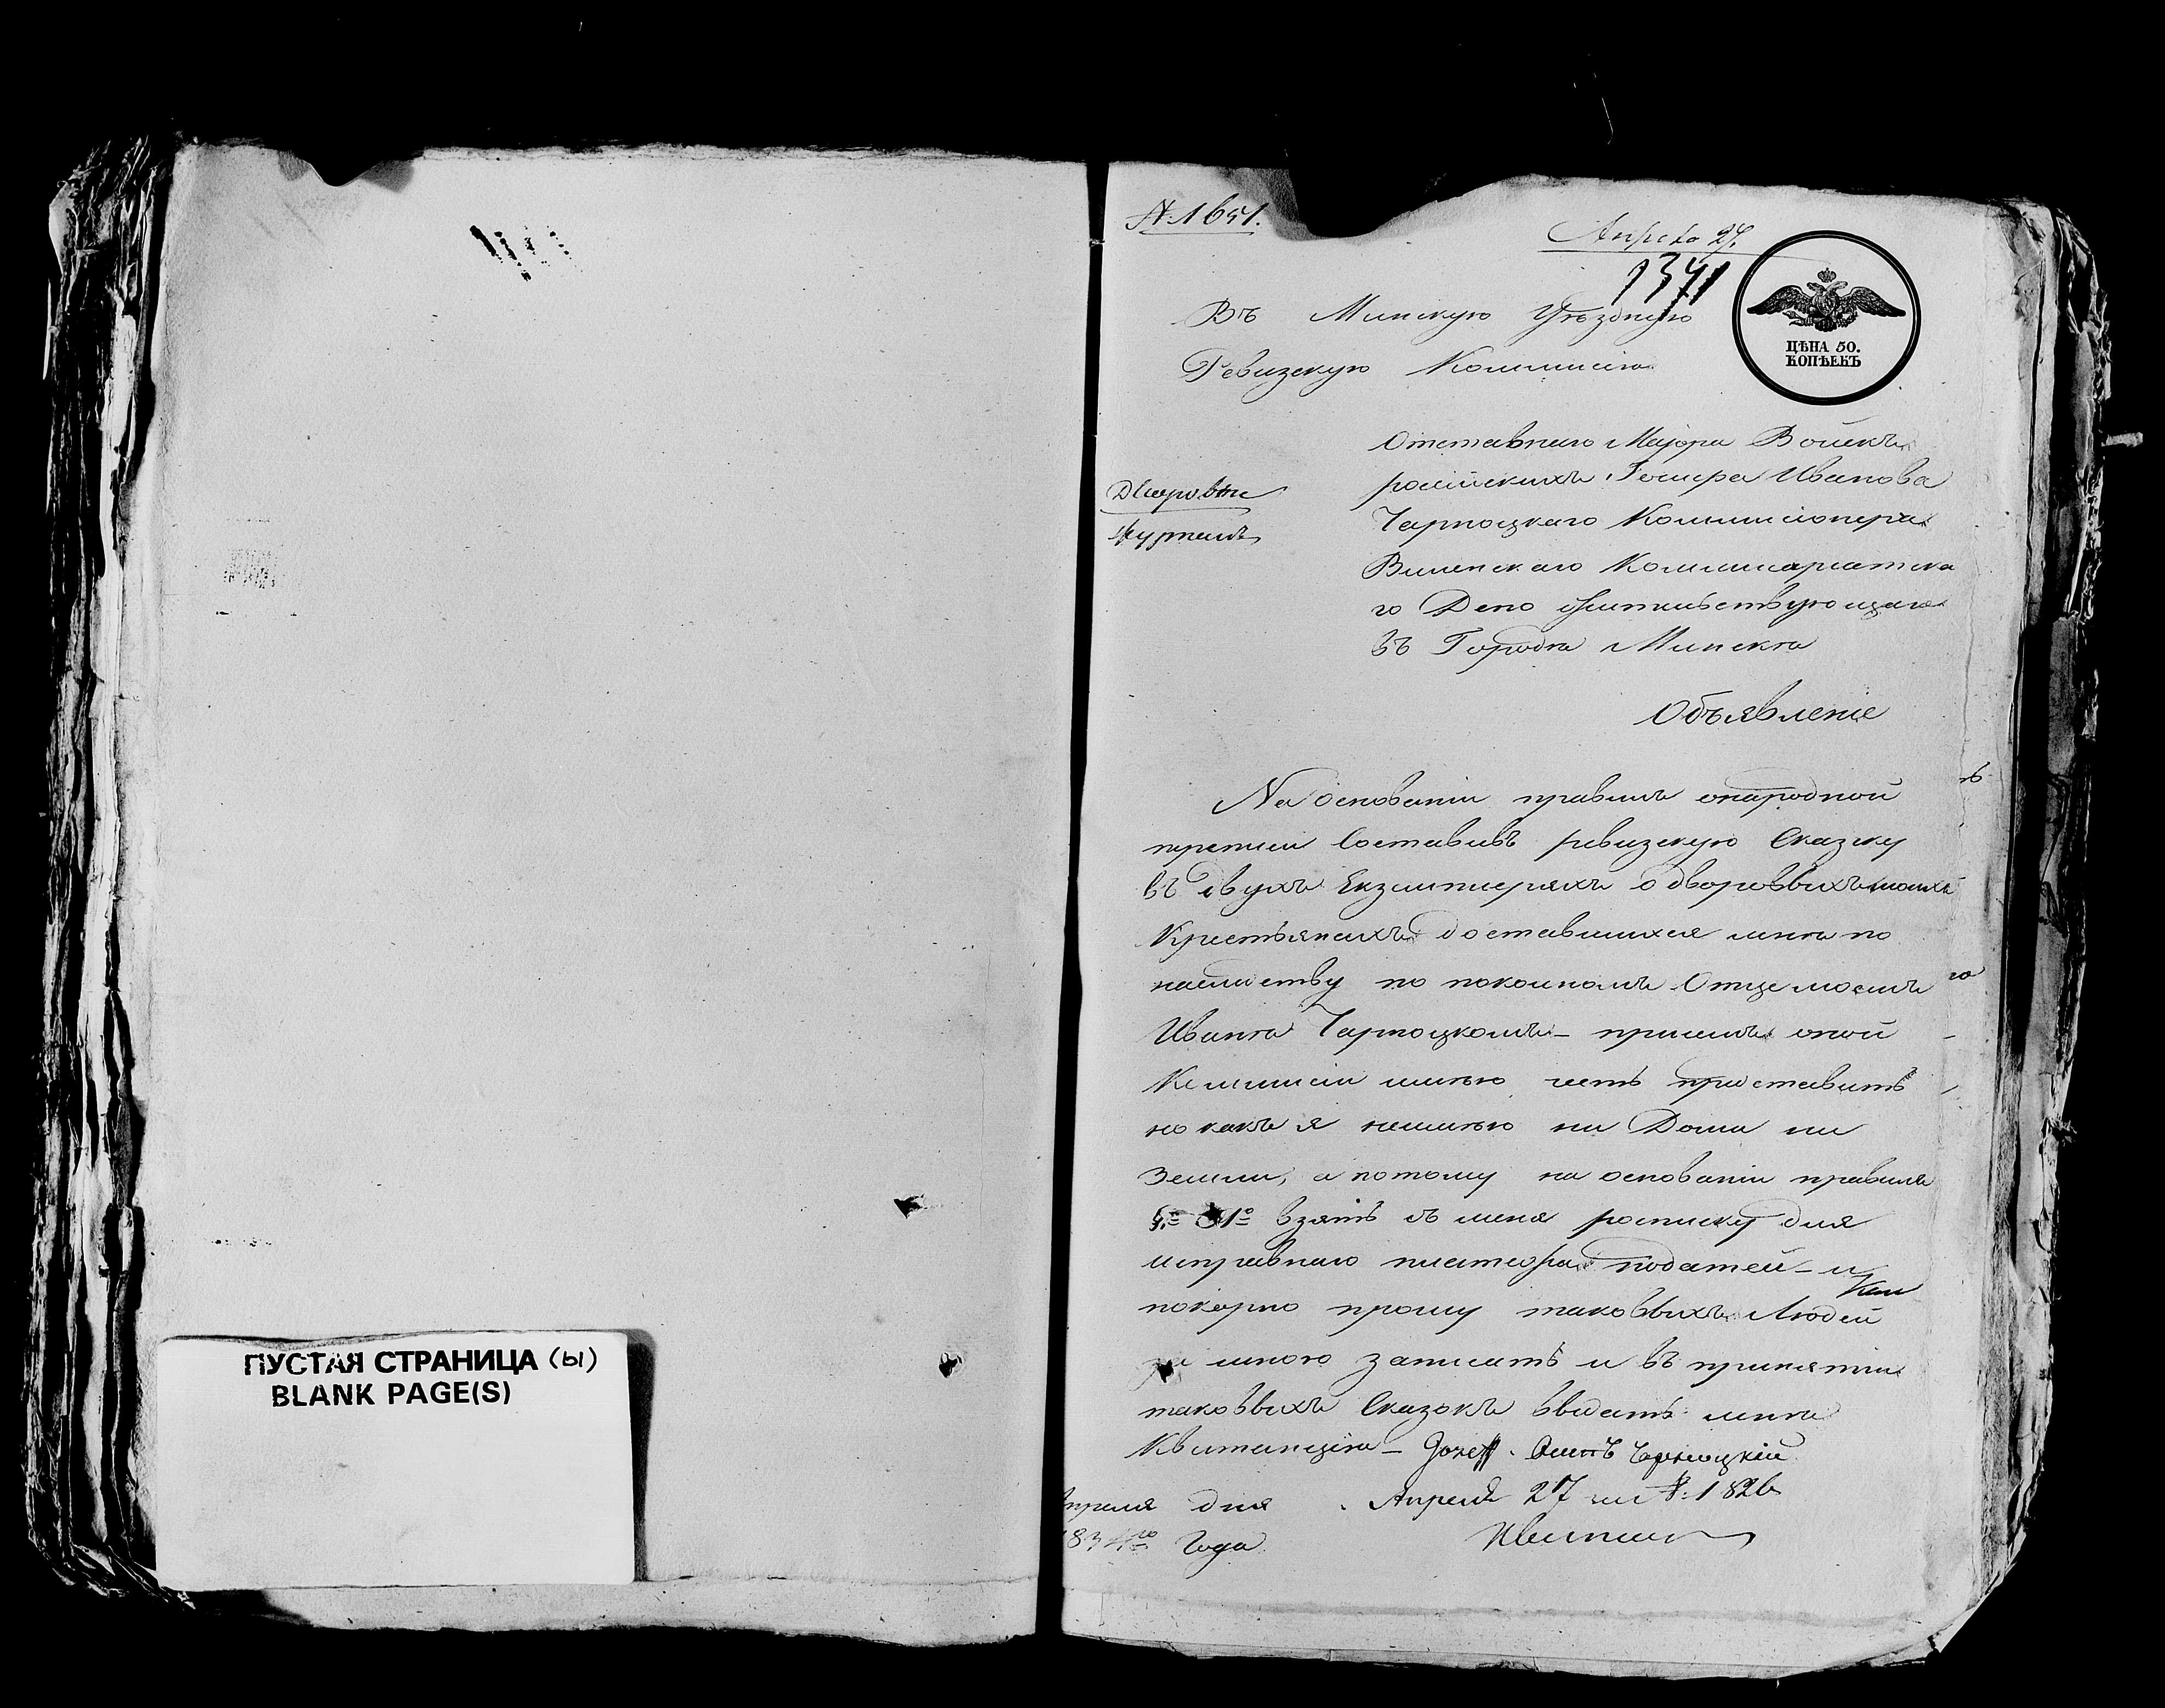 ПУСТАЯ СТРАНИЦА (ы)
BLANK PAGE(S)
№ 1651.
Апреля 27.
1341
ЦѢНА 50.
КОПѢЕКЪ
Въ Минскую Уѣздную
Ревизскую Коммисію
Отставнаго Маіора Войскъ
россійскихъ Іосифа Иванова
Чарноцкаго Коммисіонера
Виленскаго Коммисаріатска
го Депо жительствующаго
въ Городѣ Минскѣ
Объявленіе
На основаніи правилъ онародной
переписи Составивъ ревизскую Сказку
въ двухъ Екземплярахъ о дворовыхъ моихъ
Крестьянахъ доставшихся мнѣ по
наслѣдству по покойномъ Отце моемъ
Иванѣ Чарноцкомъ – при семъ оной
Коммисіи имѣю честь представить
но какъ я неимѣю ни Дома ни
Земли, а потому на основаніи правилъ
взять съ меня росписку для
исправнаго платежа податей – и
покорно прошу таковыхъ Людей
за мною записать и въ принятіи
таковыхъ Сказокъ выдать мнѣ
Квитанцію –
Апреля дня
1834го Года
Апреля 27 1826